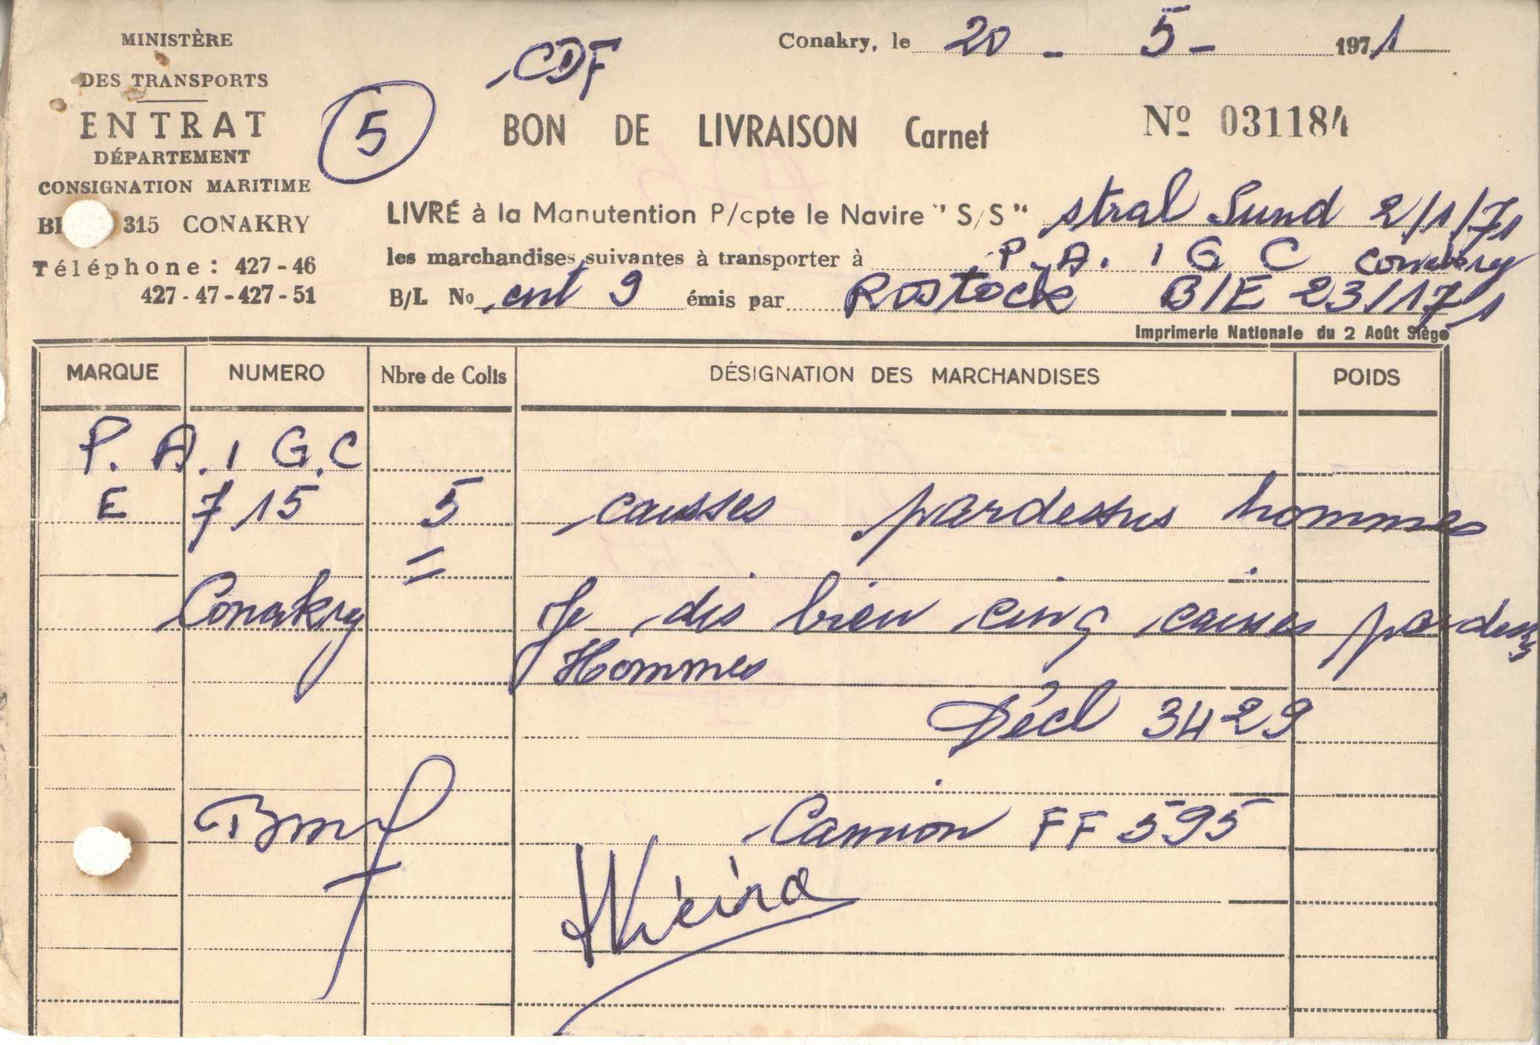 MINISTÈRE
DES TRANSPORTS
ENTRAT
DÉPARTEMENT
CONSIGNATION MARITIME
315 CONAKRY
Téléphone : 427-46
427-47-427-51
CDF
5
Conakry, le 20 - 5 - 1971
BON DE LIVRAISON Carnet
Nº 031184
LIVRÉ à la Manutention P/cpte le Navire "S/S" stral Sund 2/1/71
les marchandises suivantes à transporter à P. A. I G C Conakry
B/L No cnt 9 émis par Rostock B/E 23/171
Imprimerie Nationale du 2 Août Siège
MARQUE NUMERO Nbre de Colis DÉSIGNATION DES MARCHANDISES POIDS
P. A. I G. C
E 715 5 caisses pardessus hommes
Conakry Je dis bien cinq caisses pardess
Hommes
Décl 3429
Camion FF 595
Vieira